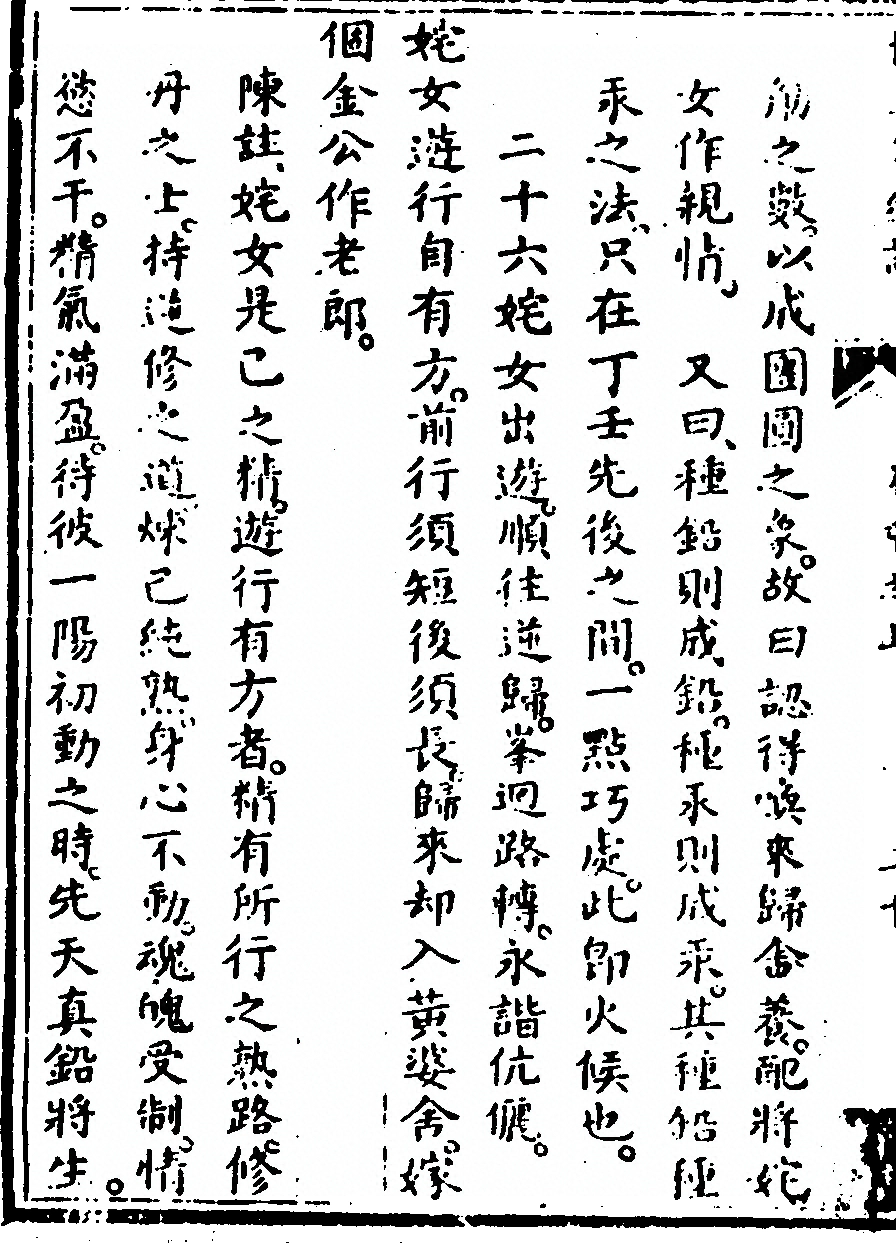 觔之數。以成團圓之象。故曰認得喚來歸舍養。配將姹
女作親情。　又曰、種鉛則成、鉛。種汞則成汞。其種鉛種
汞之法、只在丁壬先後之間。一點巧處。此即火候也。
二十六姹女出遊。順往逆歸。峯迴路轉。永諧伉儷。
姹女遊行自有方。前行須短後須長。歸來却入黃婆舍。嫁
個金公作老郎。
陳註、姹女是己之精。遊行有方者。精有所行之熟路。修
丹之士。持造修之道。煉己純熟。身心不動。魂魄受制。情
慾不干。精氣滿盈。待彼一陽初動之時。先天真鉛將生。